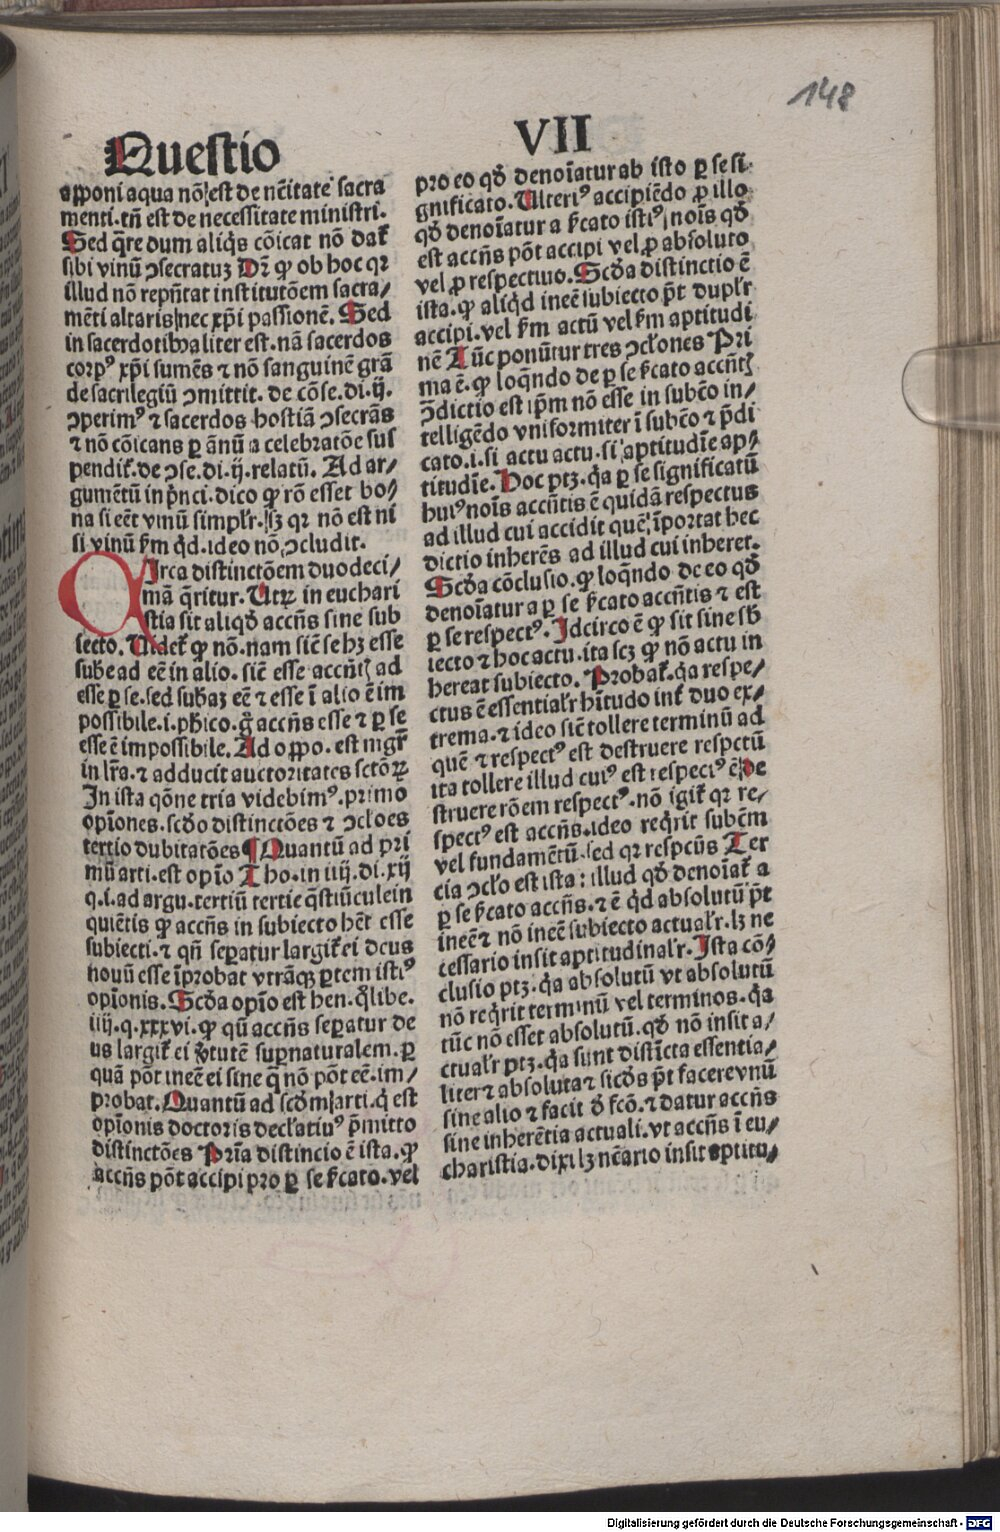 148
Questio
VII
apponi aqua nō est de nēitate sacra
menti. tñ est de necessitate ministri.
Sed q̄re dum aliq̄s cōicat nō dat᷑
sibi vinū ↄsecratuꝫ Dr̄ ꝙ ob hoc qꝛ
illud nō repn̄tat institutōem sacra/
mēti altaris nec xp̄i passionē. Sed
in sacerdoti aliter est. nā sacerdos
corpꝰ xp̄i sumēs ⁊ nō sanguinē grā
de sacrilegiū ↄmittit. de cōse. di. ij.
ↄperimꝰ ⁊ sacerdos hostiā ↄsecrās
⁊ nō cōicans ꝑ ānū a celebratōe sus
pendit᷑. de ↄse. di. ij. relatū. Ad ar/
gumētū in p̄nci. dico ꝙ rō esset bo/
na si eēt vinū simplr̄. sꝫ qꝛ nō est ni
si vinū ẜm qd̄. ideo nō ↄcludit.
CIrca distinctōem duodeci/
mā q̄ritur. Utꝝ in euchari
stia sit aliqd̄ accn̄s sine sub
iecto. Uidet᷑ ꝙ nō. nam siē se hꝫ esse
subē ad eē in alio. siē esse accn̄tꝭ ad
esse ꝑ se. sed subaꝫ eē ⁊ esse ī alio ē im
possibile. i. phico. g̊ accn̄s esse ⁊ ꝑ se
esse ē impossibile. Ad oppo. est mgr̄
in lr̄a. ⁊ adducit auctoritates sctōꝝ
In ista qōne tria videbimꝰ. primo
opīones. scd̄o distinctōes ⁊ ↄcloēs
tertio dubitatōes ¶ Quantū ad pri
mū arti. est opīo Tho. in iiij. di. xij
q. i. ad argu. tertiū tertie q̄stiūcule in
quiētis ꝙ accn̄s in subiecto hēt esse
subiecti. ⁊ qn̄ seꝑatur largit᷑ ei deus
nouū esse īprobat vtrāqꝫ ꝑtem istiꝰ
opīonis. Scd̄a opīo est hen. q̄libe.
iiij. q. xxxvi. ꝙ qn̄ accn̄s seꝑatur de
us largit᷑ ei v̄tutē supnaturalem. ꝑ
quā pōt ineē ei sine q̄ nō pōt eē. im/
probat. Quantū ad scd̄m arti. q̄ est
opīonis doctoris declatiuꝰ p̄mitto
distinctōes Pria distinctio ē ista. ꝙ
accn̄s pōt accipi pro ꝑ se ẜcato. vel
pro eo qd̄ denoīatur ab isto ꝑ se si
gnificato. Ulteriꝰ accipiēdo ꝓ illo
qd̄ denoīatur a ẜcato istiꝰ noīs qd̄
est accn̄s pōt accipi vel ꝓ absoluto
vel ꝓ respectiuo. Scd̄a distinctio ē
ista. ꝙ aliqd̄ ineē subiecto p̄t duplr̄
accipi. vel ẜm actū vel ẜm aptitudi
nē Tūc ponūtur tres ↄclones Pri
ma ē. ꝙ loqn̄do de ꝑ se ẜcato accn̄tꝭ
ↄdictio est ip̄m nō esse in subēo in/
telligēdo vniformiter ī subēo ⁊ p̄di
cato. i. si actu actu. si aptitudīe ap/
titudīe. Hoc ptꝫ. q̄a ꝑ se significatū
huiꝰ noīs accn̄tis ē quidā respectus
ad illud cui accidit quē īportat hec
dictio inherēs ad illud cui inheret.
Scd̄a cōclusio. ꝙ loqn̄do de eo qd̄
denoīatur a ꝑ se ẜcato accn̄tis ⁊ est
ꝑ se respectꝰ. Idcirco ē ꝙ sit sine sb̄
iecto ⁊ hoc actu. ita scꝫ ꝙ nō actu in
hereat subiecto. Probat᷑. q̄a respe/
ctus ē essentialr̄ hītudo int᷑ duo ex/
trema. ⁊ ideo siē tollere terminū ad
quē ⁊ respectꝰ est destruere respctū
ita tollere illud cuiꝰ est respectꝰ ē de
struere rōem respectꝰ. nō igit᷑ qꝛ re/
spectꝰ est accn̄s. ideo reqr̄it subēm
vel fundamētū. sed qꝛ respcūs Ter
cia ↄclo est ista: illud qd̄ denoīat᷑ a
ꝑ se ẜcato accn̄s. ⁊ ē qd̄ absolutū p̄t
ineē ⁊ nō ineē subiecto actualr̄. lꝫ ne
cessario insit aptitudinalr̄. Ista cō/
clusio ptꝫ. q̄a absolutū vt absolutū
nō reqr̄it terminū vel terminos. q̄a
tūc nō esset absolutū. qd̄ nō insit a/
ctualr̄ ptꝫ. q̄a sunt distīcta essentia/
liter ⁊ absoluta ⁊ sic d̄s p̄t facere vnū
sine alio ⁊ facit d̄ fcō. ⁊ datur accn̄s
sine inherētia actuali. vt accn̄s ī eu/
charistia. dixi lꝫ nēario insit aptitu/
Digitalisierung gefördert durch die Deutsche Forschungsgemeinschaft - DFG